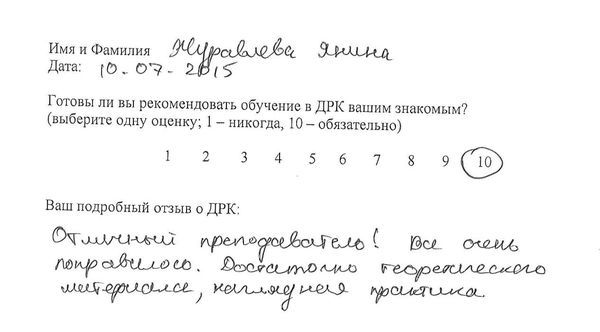 Имя и Фамилия Журавлева Янина
Дата: 10.07.2015
Готовы ли вы рекомендовать обучение в ДРК вашим знакомым?
(выберите одну оценку; 1 – никогда, 10 – обязательно)
1 2 3 4 5 6 7 8 9 10
Ваш подробный отзыв о ДРК:
Отличный преподаватель! Все очень
понравилось. Достаточно теоретического
материала, наглядная практика.